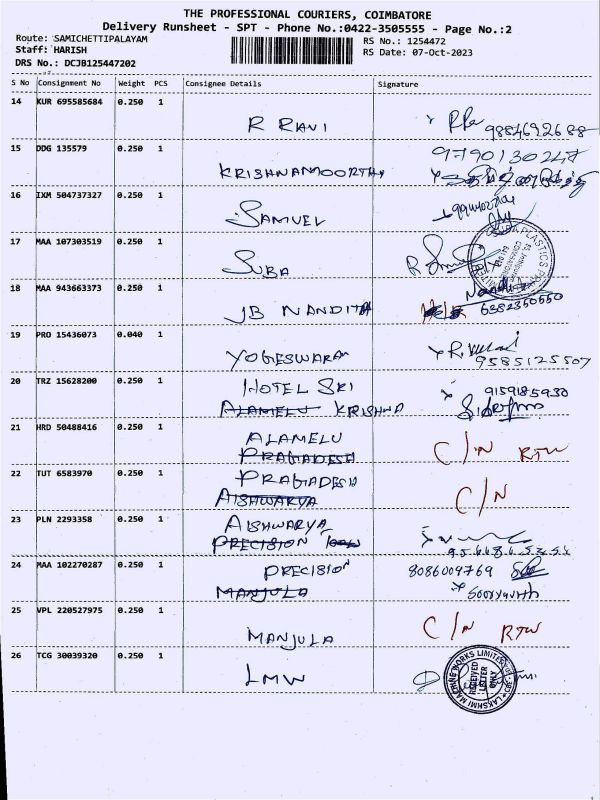 THE PROFESSIONAL COURIERS, COIMBATORE
Delivery Runsheet - SPT - Phone No.:0422-3505555 - Page No.:2
Route: SAMICHETTIPALAYAM
RS No.: 1254472
Staff: HARISH
RS Date: 07-Oct-2023
DRS No.: DCJB125447202
S No Consignment No Weight PCS Consignee Details Signature
14 KUR 695585684 0.250 1
R RAVI 9884692688
15 DDG 135579 0.250 1 9790130247
KRISHNAMOORTHY
16 IXM 504737327 0.250 1
SAMUEL
17 MAA 107303519 0.250 1
SUBA
18 MAA 943663373 0.250 1
JB NANDITA 6382350550
19 PRO 15436073 0.040 1
YOGESWARAN 9585125507
20 TRZ 15628200 0.250 1 HOTEL SRI 9159185930
ALAMELU KRISHNA
21 HRD 50488416 0.250 1 ALAMELU C/N RTW
PRAGADESH
22 TUT 6583970 0.250 1 PRAGADESH C/N
AISHWARYA
23 PLN 2293358 0.250 1 AISHWARYA
PRECISION
24 MAA 102270287 0.250 1 PRECISION 8086009769
MANJULA
25 VPL 220527975 0.250 1
MANJULA C/N RTW
26 TCG 30039320 0.250 1
LMW
LAKSHMI MACHINE WORKS LIMITED
RECEIVED
LETTER
ONLY